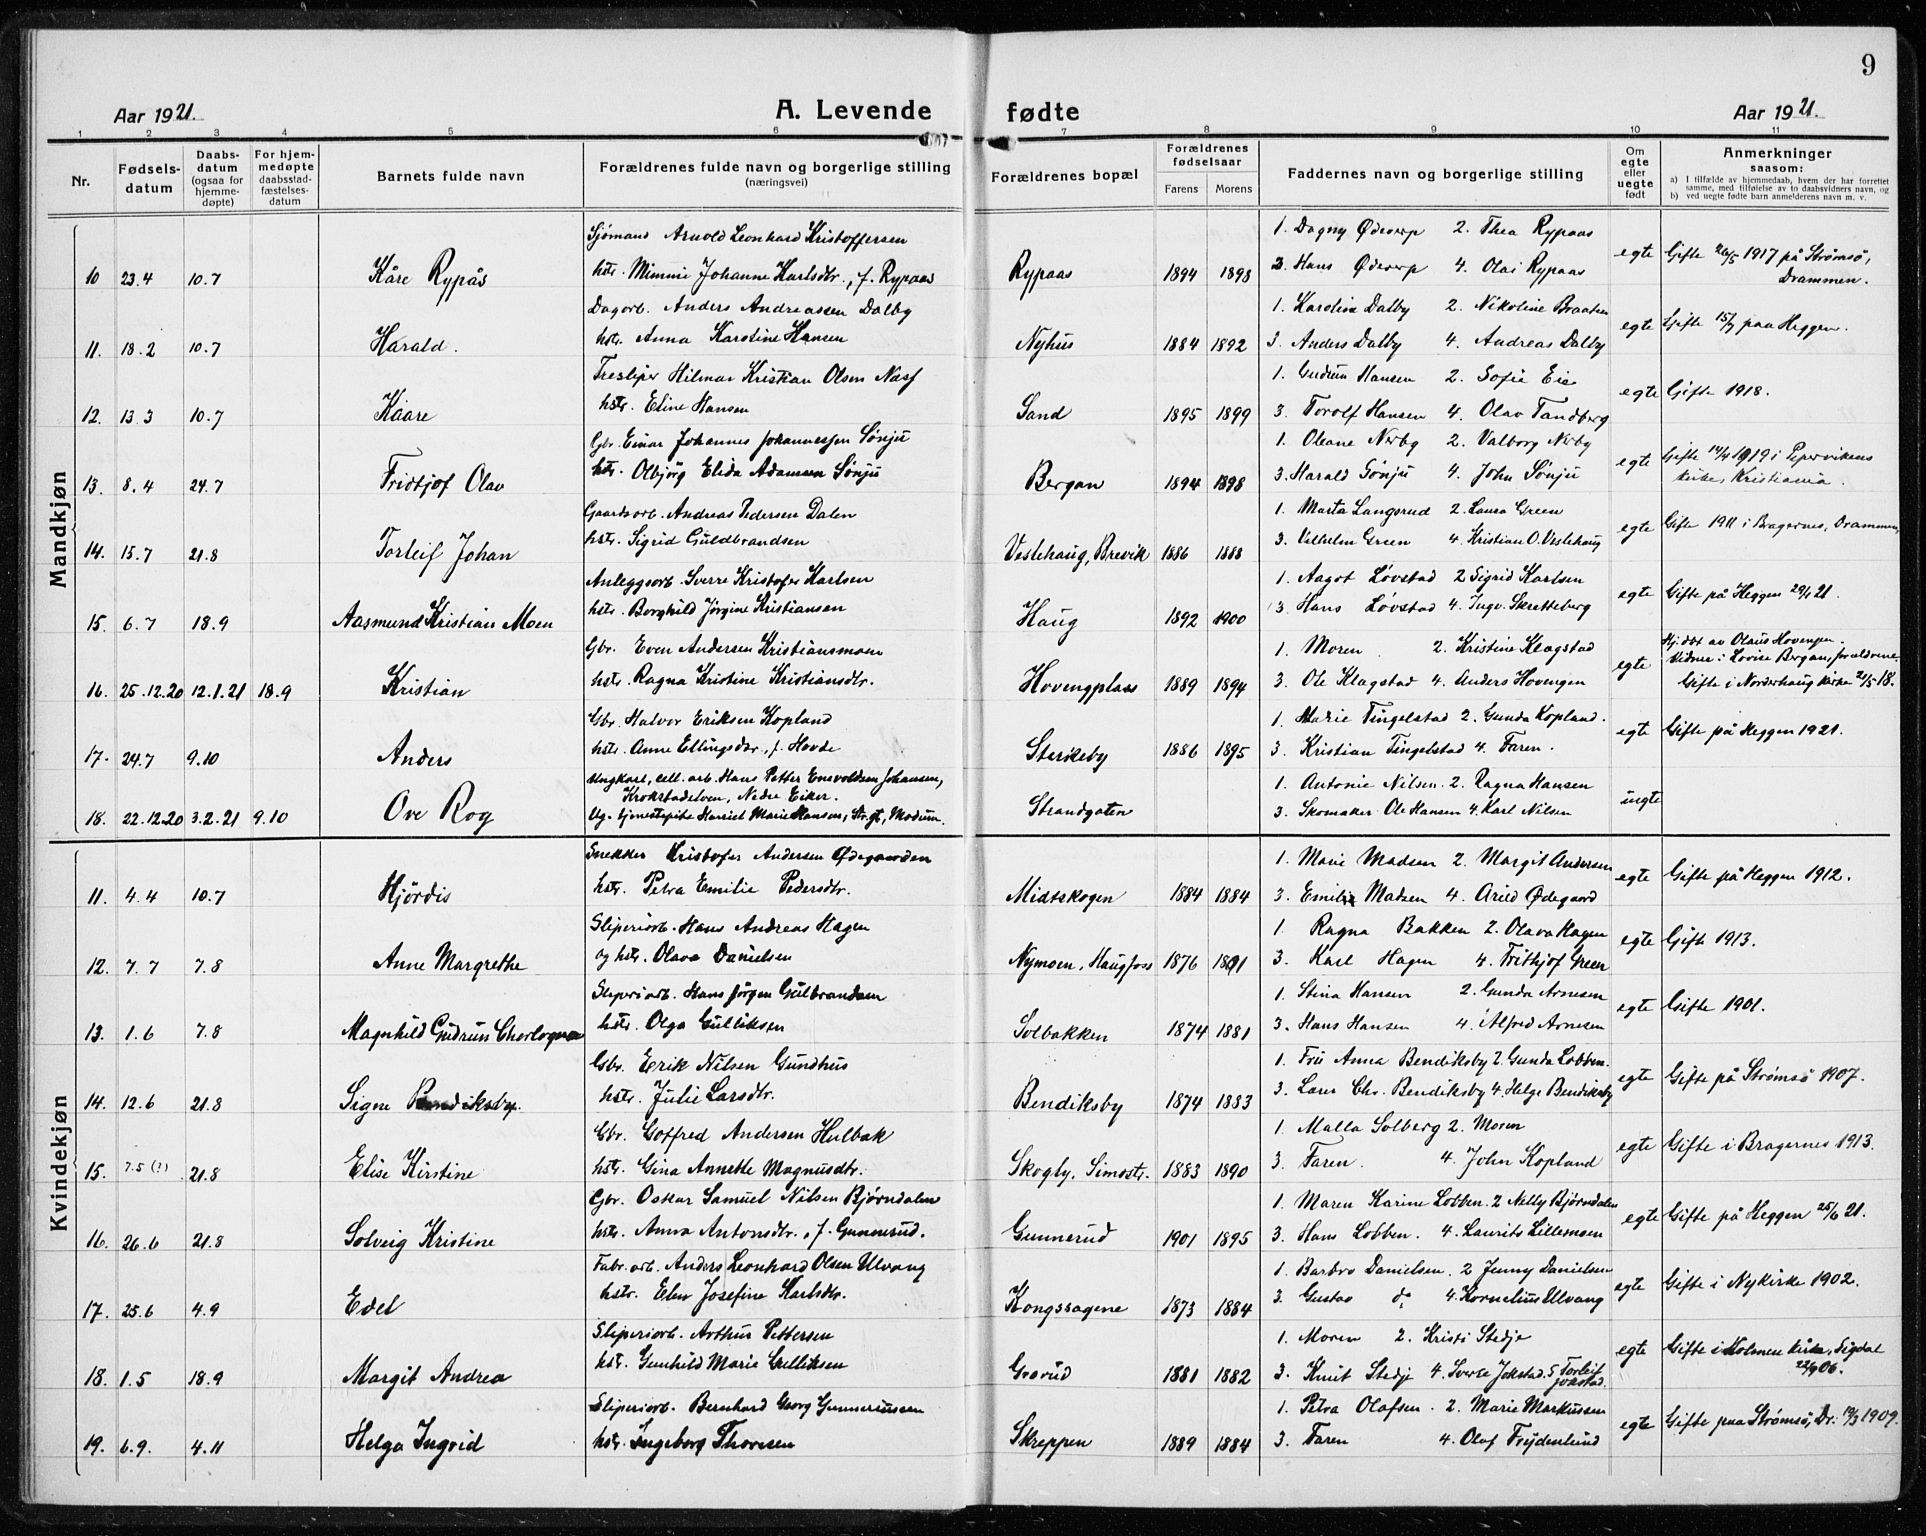 9
Aar 1921.
A. Levende fødte
Aar 1921.
1 2 3 4 5 6 7 8 9 10 11
Nr.
Fødsels-
datum
Daabs-
datum
(ogsaa for
hjemme-
døpte)
For hjem-
medøpte
daabsstad-
fæstelses-
datum
Barnets fulde navn
Forældrenes fulde navn og borgerlige stilling
(næringsvei)
Forældrenes bopæl
Forældrenes
fødselsaar
Farens Morens
Faddernes navn og borgerlige stilling
Om
egte
eller
uegte
født
Anmerkninger
saasom:
a) I tilfælde av hjemmedaab, hvem der har forrettet
samme, med tilføielse av to daabsvidners navn, og
b) ved uegte fødte barn anmelderens navn m. v.
Mandkjøn
Sjømand Arnold Leonhard Kristoffersen 1. Dagny Ødeverp 2. Thea Rypaas
10 23.4 10.7 Kåre Rypås hstr. Mimmi Johanne Karlsdtr., f. Rypaas Rypaas 1894 1898 3. Hans Ødeverp 4. Olai Rypaas egte Gifte 26/5 1917 på Strømsø,
Drammen.
Dagarb. Anders Andreassen Dalby 1. Karoline Dalby 2. Nikoline Braaten
11. 18.2 10.7 Harald. hstr. Anna Karstine Hansen Nyhus 1884 1892 3. Anders Dalby 4. Andreas Dalby egte Gifte 15/7 paa Heggen.
Tresliper Hilmar Kristian Olsen Næss 1. Gudrun Hansen 2. Sofie Eie
12. 13.3 10.7 Kaare hstr. Eline Hansen Sand 1895 1899 3. Torolf Hansen 4. Olav Tandberg egte Gifte 1918.
Gbr. Einar Johannes Johannessen Sønju 1. Oleane Nerby 2. Valborg Nerby
13. 8.4 24.7 Fridtjof Olav hstr. Olbjørg Elida Adamsen Sønju Bergan 1894 1898 3. Harald Sønju 4. John Sønju egte Gifte 14/4 1919 i Pipervikens
kirke, Kristiania.
Gaardsarb. Andreas Pedersen Dalen 1. Marta Langsrud 2. Laura Green
14. 15.7 21.8 Torleif Johan hstr. Sigrid Guldbrandsen Veslehaug, Brevik 1886 1888 3. Vilhelm Green 4. Kristian O. Veslehaug egte Gifte 1911 i Bragernes, Drammen.
Anleggsarb. Sverre Kristofer Karlsen 1. Aagot Løvstad 2 Sigrid Karlsen
15. 6.7 18.9 Aasmund Kristian Moen hstr. Borghild Jørgine Kristiansen Haug 1892 1900 3. Hans Løvstad 4. Ingv. Skretteberg egte Gifte på Heggen 29/1 21.
Gbr. Even Andersen Kristiansmoen 1. Moren 2. Kristine Klagstad
16. 25.12.20 12.1.21 18.9 Kristian hstr. Ragna Kristine Kristiansdtr. Hovengplass 1889 1894 3. Ole Klagstad 4. Anders Hovengen egte Hj.døbt av Olaus Hovengen.
Vidner: Lovise Bergan, foreldrene.
Gifte i Norderhaug kirke 21/5 18.
Gbr. Halvor Eriksen Kopland 1. Marie Tingelstad 2. Gunda Kopland.
17. 24.7 9.10 Anders hstr. Anne Ellingsdtr., f. Hovde Sterikeby 1886 1895 3. Kristian Tingelstad 4. Faren. egte Gifte på Heggen 1921.
Ungkarl, cell. arb. Hans Petter Enevoldsen Johansen,
Krokstadelven, Nedre Eiker. 1. Antonie Nilsen. 2. Ragna Hansen
18. 22.12.20 3.2.21 9.10 Ove Rog Ug. tjenestepike Harriet Marie Hansen, Str.gt., Modum. Strandgaten 3. Skomaker Ole Hansen 4. Karl Nilsen uegte
Kvindekjøn
Snekker Kristofer Andersen Ødegaarden 1. Marie Madsen 2. Margit Andersen
11. 4.4 10.7 Hjørdis hstr. Petra Emilie Pedersdtr. Midtskogen 1884 1884 3. Emilie Madsen 4. Arild Ødegaard egte Gifte på Heggen 1912.
Sliperiarb. Hans Andreas Hagen 1. Ragna Bakken 2. Olava Hagen
12. 7.7 7.8 Anne Margrethe og hstr. Olava Danielsen Nymoen, Haugfoss 1876 1891 3. Karl Hagen 4. Frithjof Green egte Gift 1913.
Sliperiarb. Hans Jørgen Gulbrandsen 1. Stina Hansen 2. Gunda Arnesen
13. 1.6 7.8 Magnhild Gudrun hstr. Olga Gulliksen Solbakken 1874 1881 3. Hans Hansen 4. Alfred Arnesen egte Gifte 1901.
Gbr. Eerik Nilsen Gundhus 1. Fru Anna Bendiksby 2 Gunda Lobben.
14. 12.6 21.8 Signe Bendiksby. hstr. Julie Larsdtr. Bendiksby 1874 1883 3. Lars Chr. Bendiksby 4. Helge Bendiksby egte Gifte på Strømsø 1907.
Gbr. Goffred Andersen Hulbak 1. Malla Solberg 2. Moren
15. 7.5 (?) 21.8 Elise Kirstine hstr. Gina Annette Magnusdtr. Skogly, Simostr. 1883 1890 3. Faren. 4. John Kopland egte Gifte i Bragernes 1913.
Gbr. Oskar Samuel Nilsen Bjørndalen 1. Maren Karine Lobben. 2 Nelly Bjørndalen
16. 26.6 21.8 Solveig Kristine hstr. Anna Antonsdtr., f. Gunnerud. Gunnerud 1901 1895 3. Hans Lobben. 4. Laurits Lillemoen egte Gifte på Heggen 25/6 21.
Fabr. arb. Anders Leonhard Olsen Ulvang 1. Barbro Danielsen. 2 Jenny Danielsen
17. 25.6 4.9 Edel hstr. Elen Josefine Karlsdtr. Kongssagene 1873 1884 3. Gustav do 4. Kornelius Ulvang egte Gifte i Nykirke 1902.
Sliperiarb. Arthur Pettersen 1. Moren 2. Kristi Stedje
18. 1.5 18.9 Margit Andrea hstr. Gunhild Marie Gulliksen Gravud 1881 1882 3. Knut Stedje 4. Sverse Jokstad. 5 Torleif
Jokstad. egte Gifte i Holmen kirke, Sigdal
22/9 06.
Sliperiarb. Bernhard Georg Gunneriussen 1. Petra Olafsen. 2. Marie Markussen
19. 6.9. 4.11 Helga Ingvid hstr. Ingeborg Thoresen Skreppen 1889 1884 3. Faren 4. Olaf Frydenlund egte Gifte paa Strømsø, Dr. 19/3 1909.